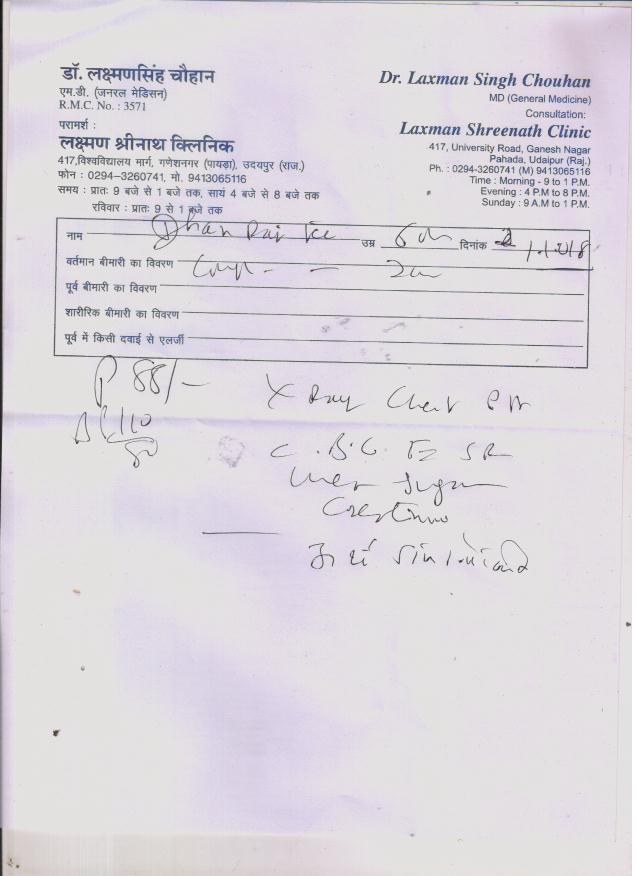 डॉ. लक्ष्मणसिंह चौहान
एम.डी. (जनरल मेडिसन)
R.M.C. No. : 3571
परामर्श :
लक्ष्मण श्रीनाथ क्लिनिक
417,विश्वविद्यालय मार्ग, गणेशनगर (पायड़ा), उदयपुर (राज.)
फोन : 0294-3260741, मो. 9413065116
समय : प्रातः 9 बजे से 1 बजे तक, सायं 4 बजे से 8 बजे तक
रविवार : प्रातः 9 से 1 बजे तक
Dr. Laxman Singh Chouhan
MD (General Medicine)
Consultation:
Laxman Shreenath Clinic
417, University Road, Ganesh Nagar
Pahada, Udaipur (Raj.)
Ph. : 0294-3260741 (M) 9413065116
Time : Morning - 9 to 1 P.M.
Evening : 4 P.M to 8 P.M.
Sunday : 9 A.M to 1 P.M.
नाम Dhan Raj उम्र दिनांक
वर्तमान बीमारी का विवरण
पूर्व बीमारी का विवरण
शारीरिक बीमारी का विवरण
पूर्व में किसी दवाई से एलर्जी
P 88/-
110
80
X Ray Chest PA
C.B.C.